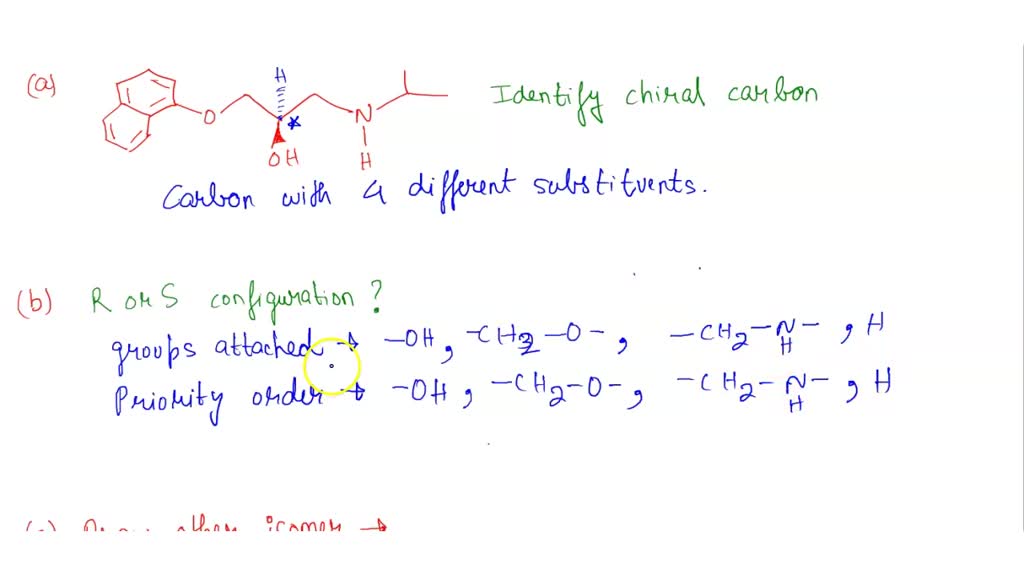 (a) H Identify chiral carbon
O * N
OH H
Carbon with 4 different substituents.
(b) R or S configuration ?
groups attached → -OH, -CH2-O-, -CH2-N-, H
H
Priority order → -OH, -CH2-O-, -CH2-N-, H
H
isomer →